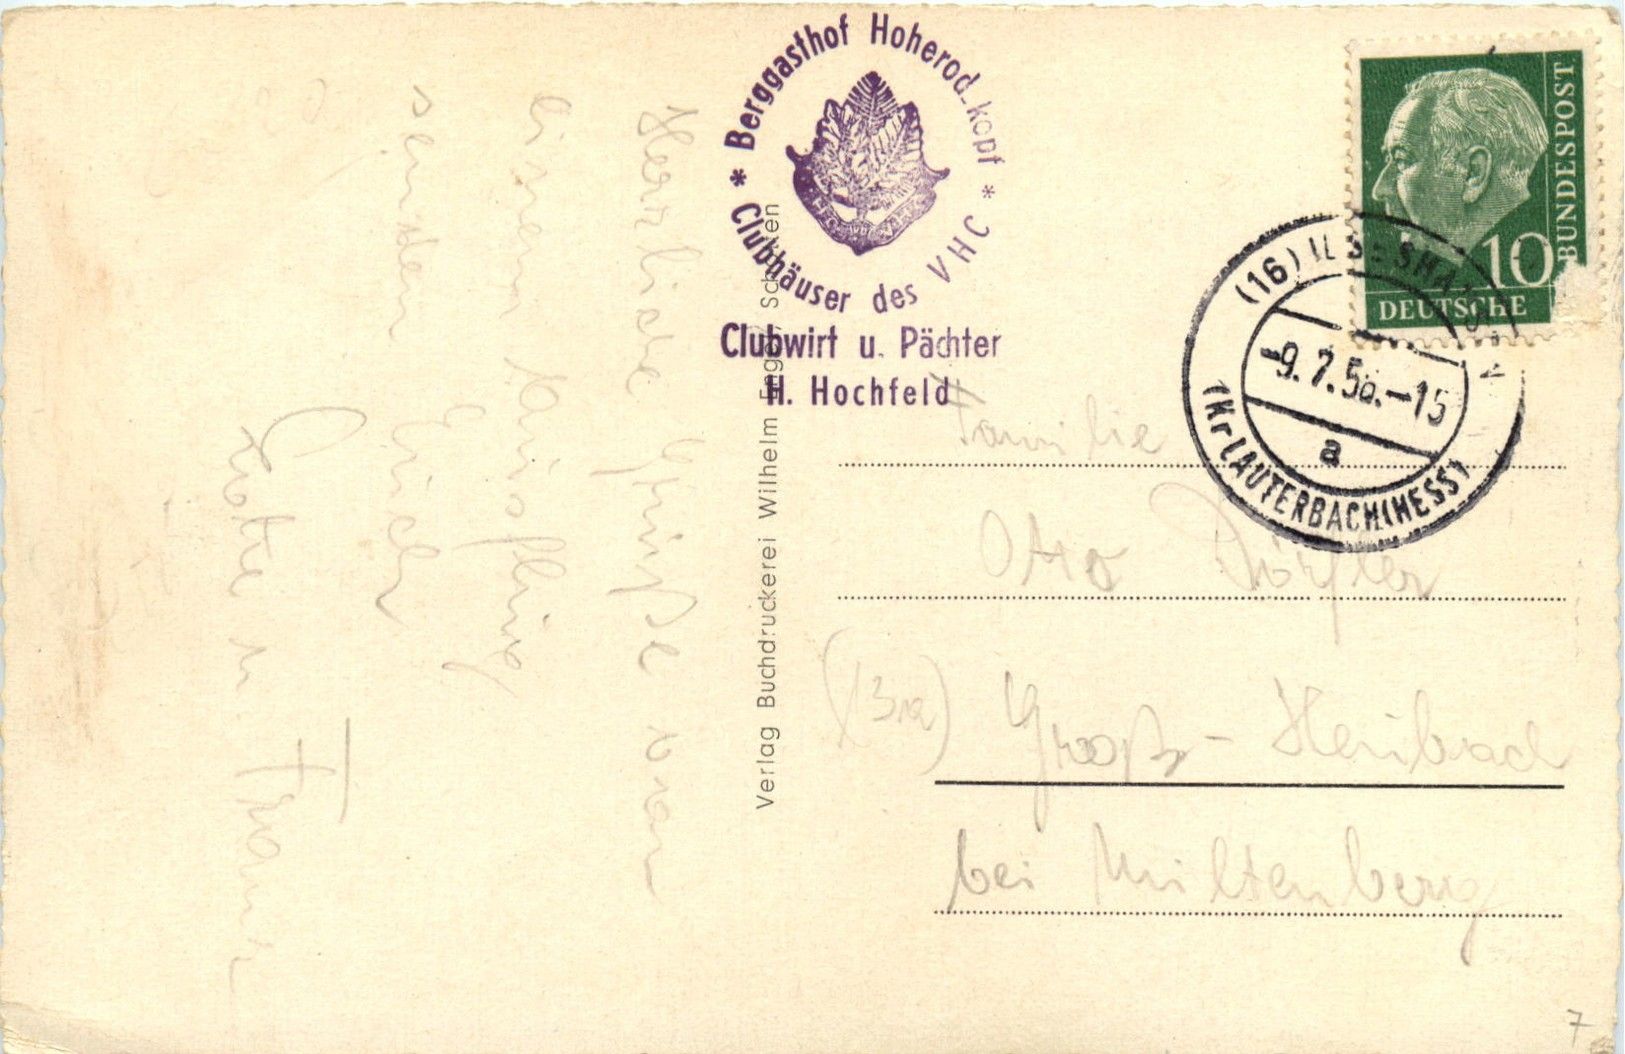 Herzliche Grüße von
einem Ausflug
senden Euch
Lotte u. Franz
* Berggasthof Hoherod-kopf *
Clubhäuser des VHC
Clubwirt u. Pächter
H. Hochfeld
Verlag Buchdruckerei Wilhelm Engel, Schotten
DEUTSCHE
BUNDESPOST
10
(16) ILBESHAUSEN
-9.7.56.-15
a
(Kr LAUTERBACH (HESS)
Familie
Otto
Groß-Heubach
bei Miltenberg
7